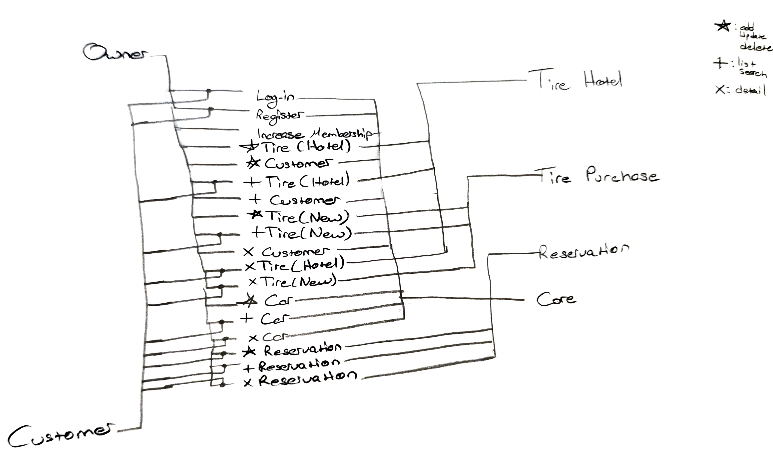 Owner
Log-in
Register
Increase Membership
★ Tire (Hotel)
★ Customer
+ Tire (Hotel)
+ Customer
★ Tire (New)
+ Tire (New)
x Customer
x Tire (Hotel)
x Tire (New)
★ Car
+ Car
x Car
★ Reservation
+ Reservation
x Reservation
Customer
Tire Hotel
Tire Purchase
Reservation
Core
★: add
update
delete
+: list
search
x: detail